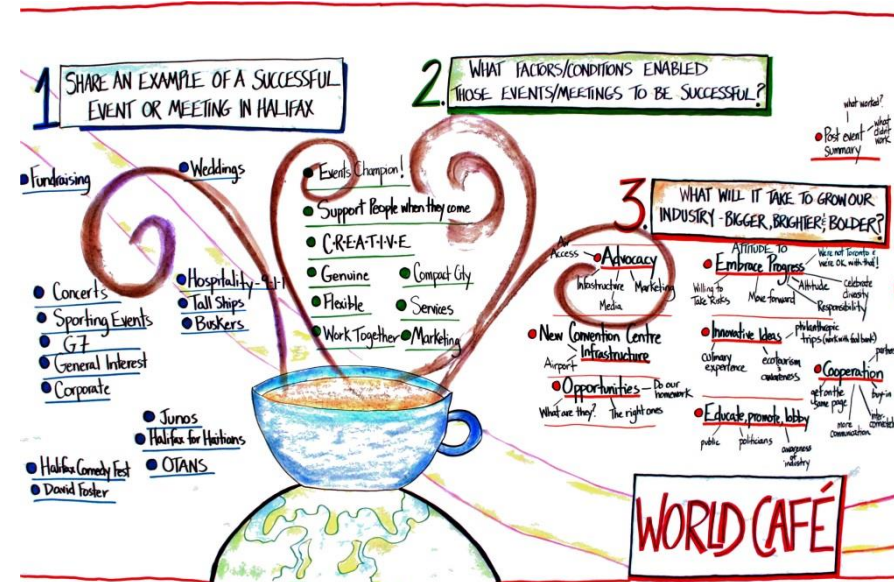 1
SHARE AN EXAMPLE OF A SUCCESSFUL
EVENT OR MEETING IN HALIFAX
Fundraising
Weddings
Concerts
Sporting Events
G7
General Interest
Corporate
Hospitality - 9-1-1
Tall Ships
Buskers
Junos
Halifax for Haitians
OTANS
Halifax Comedy Fest
David Foster
2.
WHAT FACTORS/CONDITIONS ENABLED
THOSE EVENTS/MEETINGS TO BE SUCCESSFUL?
Events Champion!
Support People when they come
C·R·E·A·T·I·V·E
Genuine
Flexible
Work Together
Compact City
Services
Marketing
3.
WHAT WILL IT TAKE TO GROW OUR
INDUSTRY - BIGGER, BRIGHTER & BOLDER?
what worked?
Post event
Summary
what
didn't
work
Air
Access
Advocacy
Infrastructure
Marketing
Media
New Convention Centre
Infrastructure
Airport
Opportunities
Do our
homework
What are they?
The right ones
ATTITUDE TO
Embrace Progress
We're not Toronto &
we're OK with that!
Willing to
Take Risks
Move forward
Attitude
celebrate
diversity
Responsibility
Innovative Ideas
philanthropic
trips (work with food bank)
culinary
experience
ecotourism
awareness
Cooperation
get on the
same page
more
communication
buy-in
Educate, promote, lobby
public
politicians
awareness
of
industry
WORLD CAFÉ